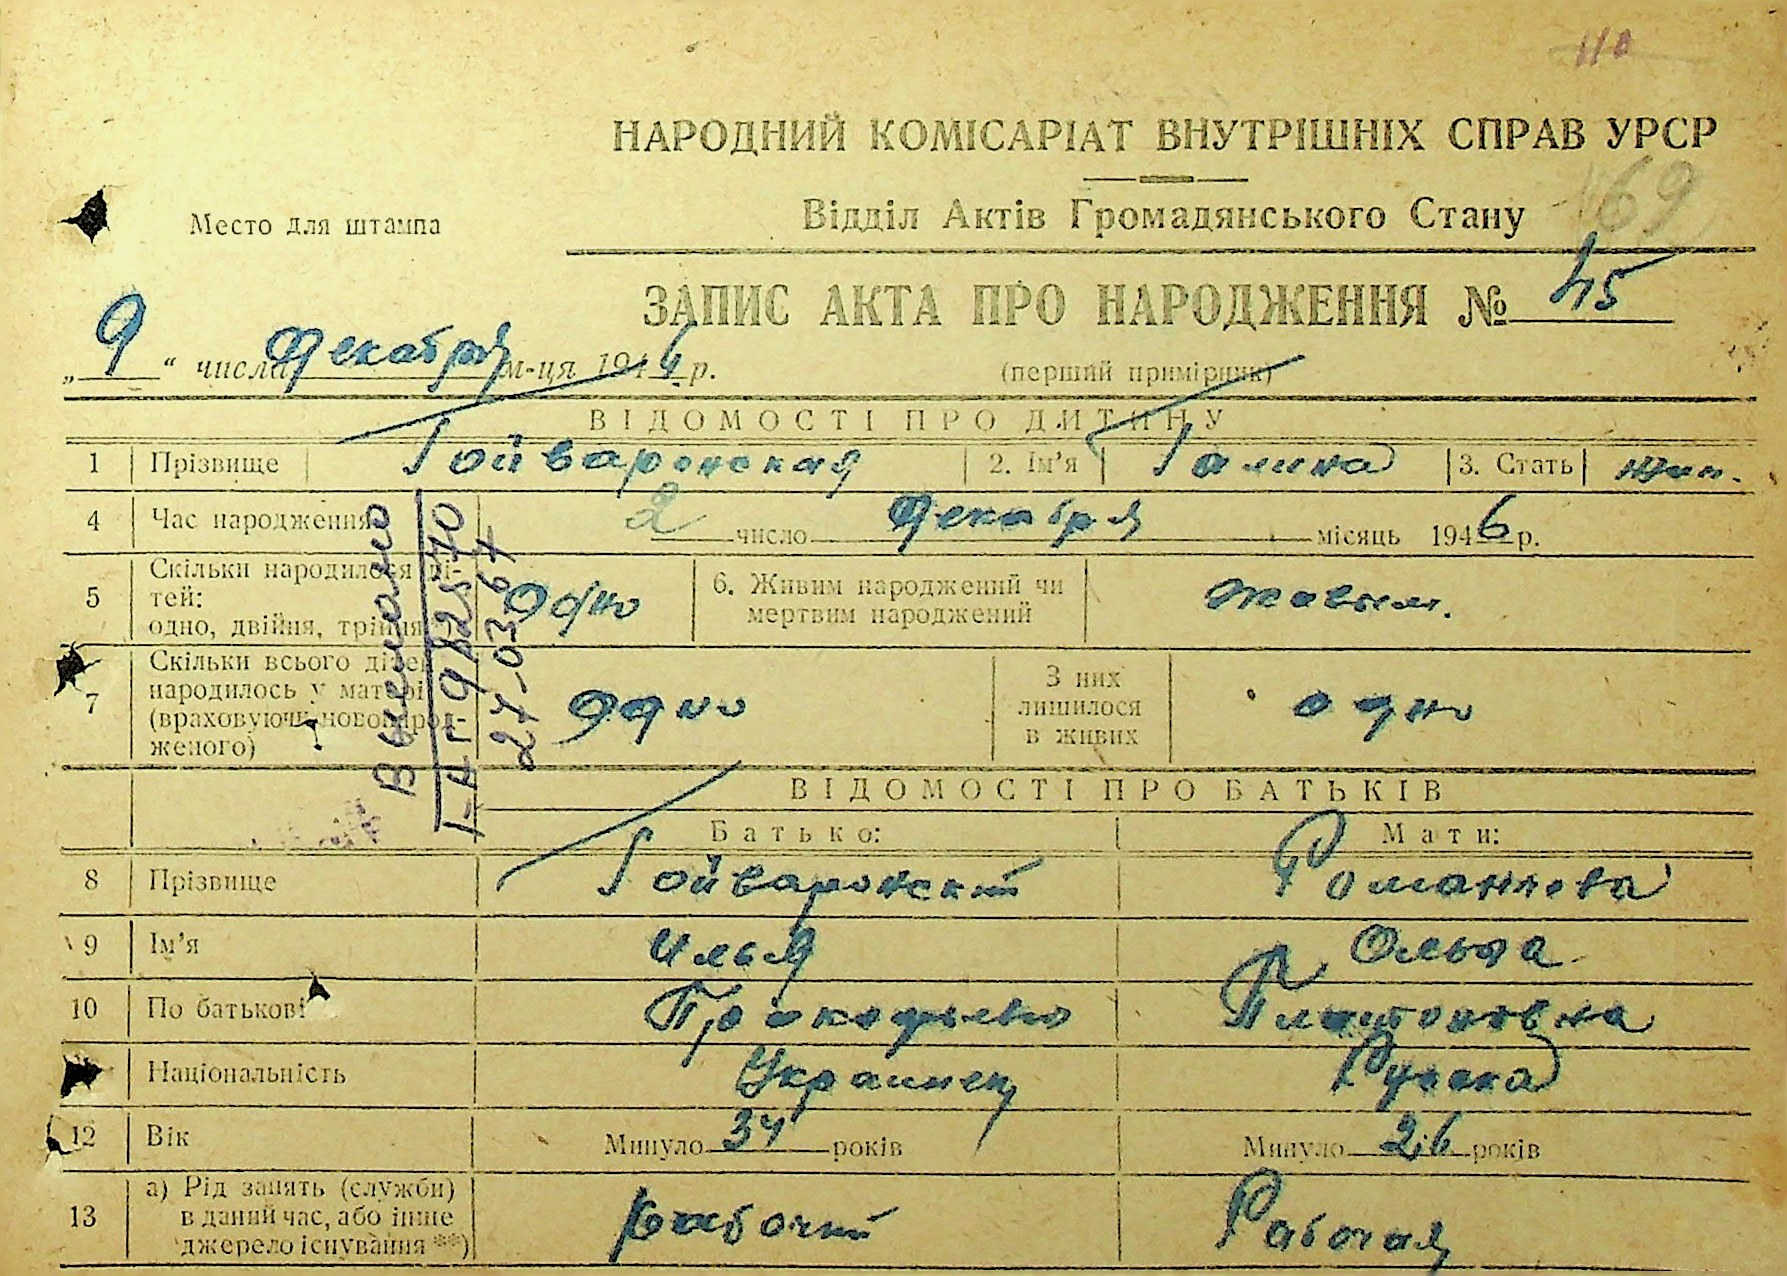 110
НАРОДНИЙ КОМІСАРІАТ ВНУТРІШНІХ СПРАВ УРСР
69
Место для штампа
Відділ Актів Громадянського Стану
ЗАПИС АКТА ПРО НАРОДЖЕННЯ № 45
„ 9 “ числа Декабря м-ця 1946 р.
(перший примірник)
ВІДОМОСТІ ПРО ДИТИНУ
1 Прізвище Гойваронская 2. Ім'я Галина 3. Стать жен.
4 Час народження 2 число Декабря місяць 1946 р.
5 Скільки народилося ді-
тей:
одно, двійня, трійня*) Одно 6. Живим народжений чи
мертвим народжений живым.
7 Скільки всього дітей
народилось у матері
(враховуючи новонарод-
женого) Одно З них
лишилося
в живих одно
Выписано
27-03-67
ВІДОМОСТІ ПРО БАТЬКІВ
Батько: Мати:
8 Прізвище Гойваронский Романнова
9 Ім'я Илья Ольга
10 По батькові Платоновна
Національність Украинец Руская
12 Вік Минуло 34 років Минуло 26 років
13 а) Рід занять (служби)
в даний час, або інше
джерело існування **) рабочий Рабочая